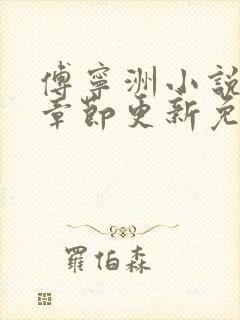 傅寧洲小說
章節更新免
羅伯森